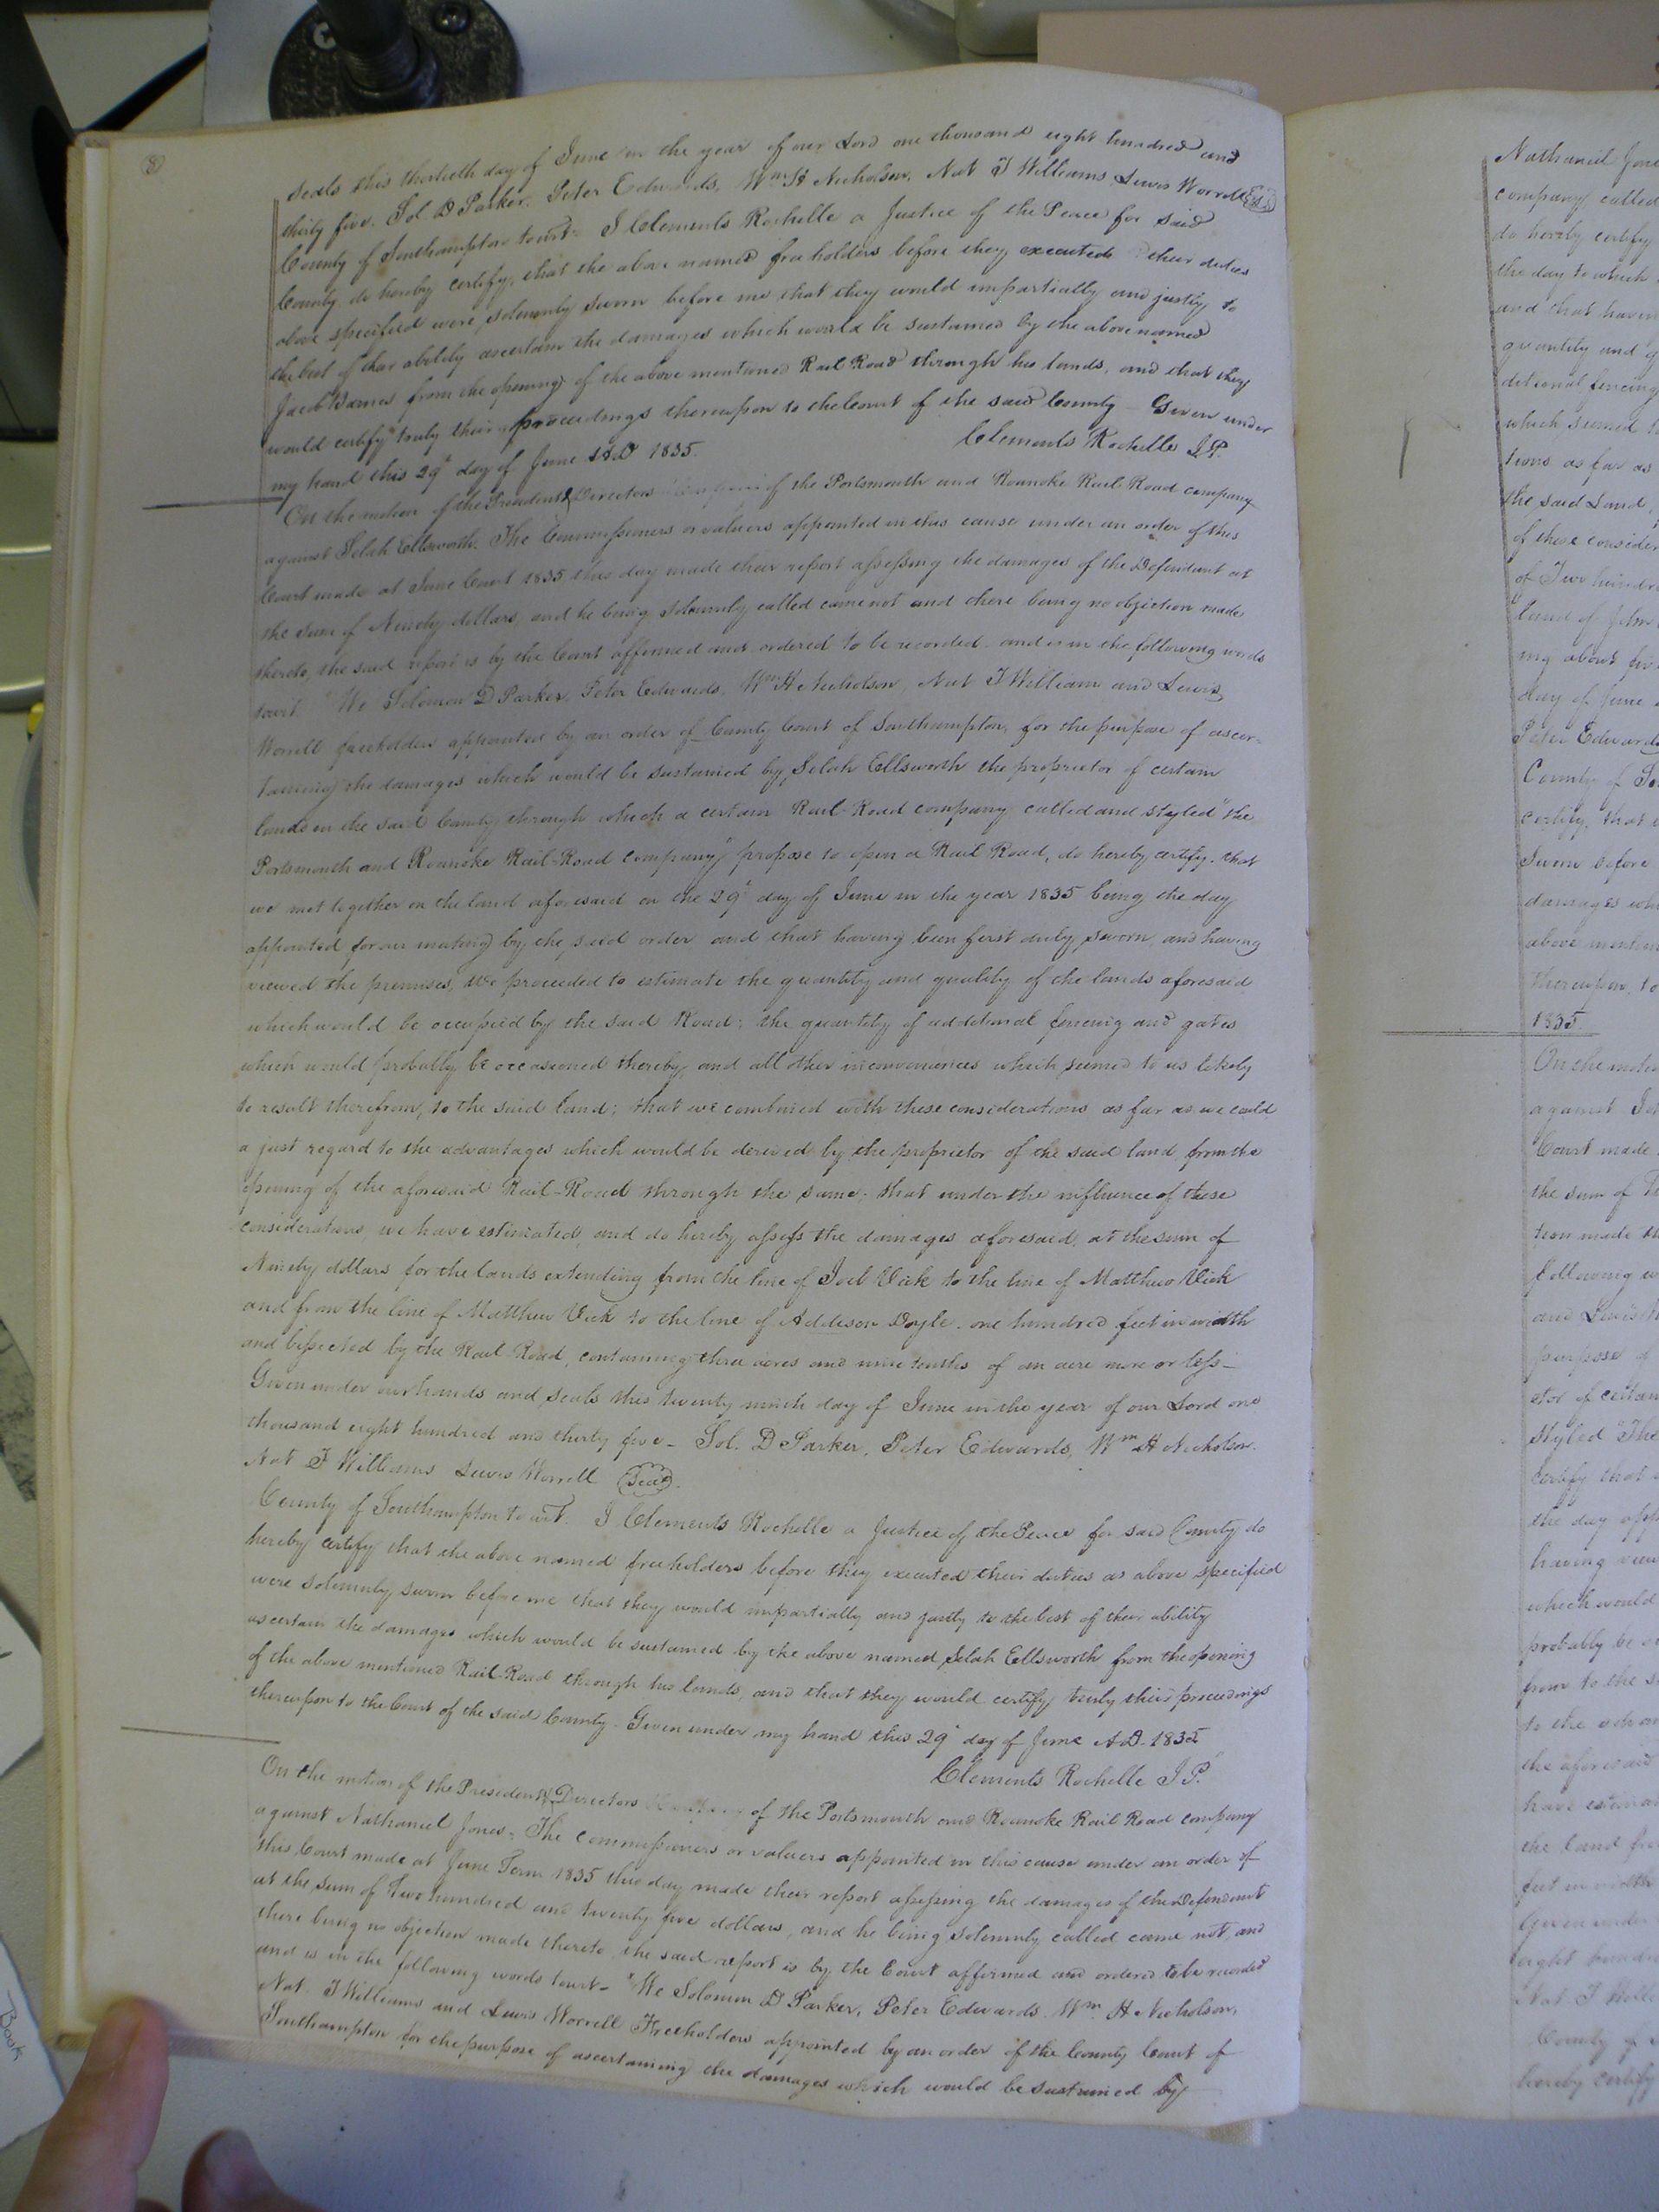 8
seals this thirtieth day of June in the year of our Lord one thousand eight hundred and
thirty five. Sol. D Parker. Peter Edwards, Wm H Nicholson, Nat T Williams, Lewis Worrell
County of Southampton towit. I Clements Rochelle a Justice of the Peace for said
County do hereby certify, that the above named freeholders before they executed their duties
above specified were solemnly sworn before me that they would impartially and justly to
the best of their ability ascertain the damages which would be sustained by the above named
Jacob Barnes from the opening of the above mentioned Rail Road through his lands, and that they
would certify truly their proceedings thereupon to the Court of the said County - Given under
my hand this 29th day of June A.D 1835.
Clements Rochelle J.P.
On the motion of the President & Directors of the Portsmouth and Roanoke Rail Road company
against Selah Ellsworth. The Commissioners or valuers appointed in this cause under an order of this
Court made at June Court 1835 this day made their report assessing the damages of the Defendant at
the sum of Ninety dollars, and he being solemnly called came not and there being no objection made
thereto, the said report is by the Court affirmed and ordered to be recorded and is in the following words
towit "We Solomon D Parker, Peter Edwards, Wm H Nicholson, Nat T William and Lewis
Worrell freeholders appointed by an order of County Court of Southampton, for the purpose of ascer-
taining the damages which would be sustained by Selah Ellsworth the proprietor of certain
lands in the said County through which a certain Rail-Road company called and styled "the
Portsmouth and Roanoke Rail-Road company" propose to open a Rail Road, do hereby certify, that
we met together on the land aforesaid on the 29th day of June in the year 1835 being the day
appointed for our meeting by the said order and that having been first duly sworn, and having
viewed the premises, We proceeded to estimate the quantity and quality of the lands aforesaid
which would be occupied by the said Road; the quantity of additional fencing and gates
which would probably be occasioned thereby, and all other inconveniences which seemed to us likely
to result therefrom, to the said land; that we combined with these considerations, as far as we could
a just regard to the advantages which would be derived by the proprietor of the said land from the
opening of the aforesaid Rail-Road through the same; that under the influence of these
considerations, we have estimated, and do hereby assess the damages aforesaid, at the sum of
Ninety dollars for the lands extending from the line of Joel Vick to the line of Matthew Vick
and from the line of Matthew Vick to the line of Addison Doyle. one hundred feet in width
and bisected by the Rail-Road, containing three acres and nine tenths of an acre more or less -
Given under our hands and seals this twenty ninth day of June in the year of our Lord one
thousand eight hundred and thirty five - Sol. D Parker, Peter Edwards, Wm H Nicholson.
Nat T Williams Lewis Worrell (Seal).
County of Southampton to wit. I Clements Rochelle a Justice of the Peace for said County do
hereby certify that the above named freeholders before they executed their duties as above specified
were solemnly sworn before me that they would impartially and justly to the best of their ability
ascertain the damages which would be sustained by the above named Selah Ellsworth from the opening
of the above mentioned Rail-Road through his lands, and that they would certify truly their proceedings
thereupon to the Court of the said County. Given under my hand this 29th day of June A.D. 1835
Clements Rochelle J.P.
On the motion of the President & Directors of the Portsmouth and Roanoke Rail Road company
against Nathaniel Jones. The commissioners or valuers appointed in this cause under an order of
this Court made at June Term 1835 this day made their report assessing the damages of the Defendant
at the sum of Two hundred and twenty five dollars, and he being solemnly called came not, and
there being no objection made thereto, the said report is by the Court affirmed and ordered to be recorded
and is in the following words towit - "We Solomon D Parker, Peter Edwards. Wm. H Nicholson,
Nat. T Williams and Lewis Worrell Freeholders appointed by an order of the County Court of
Southampton for the purpose of ascertaining the damages which would be sustained by
Nathaniel
company called
do hereby certify
the day to which
and that
quantity and
ditional fencing
which seemed
tions as far as
the said Land
of these
of Two hundred
land of John
ing about
day of June
Peter Edwards
County of
certify, that
Sworn before
damages
above
thereupon, to
1835
On the motion
against
Court made
the sum of
tion made
following
and Lewis
purpose of
etor of certain
styled "The
certify that
the day
having
which would
probably be
from to the
to the
the aforesaid
have
the land
feet in width
Given under
eight
Nat. T
County of
hereby certify
Book